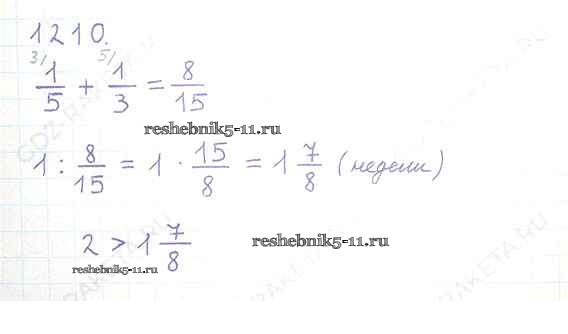 1210.
3/ 1/5 + 5/ 1/3 = 8/15
reshebnik5-11.ru
1 : 8/15 = 1 · 15/8 = 1 7/8 (недели)
2 > 1 7/8
reshebnik5-11.ru
reshebnik5-11.ru